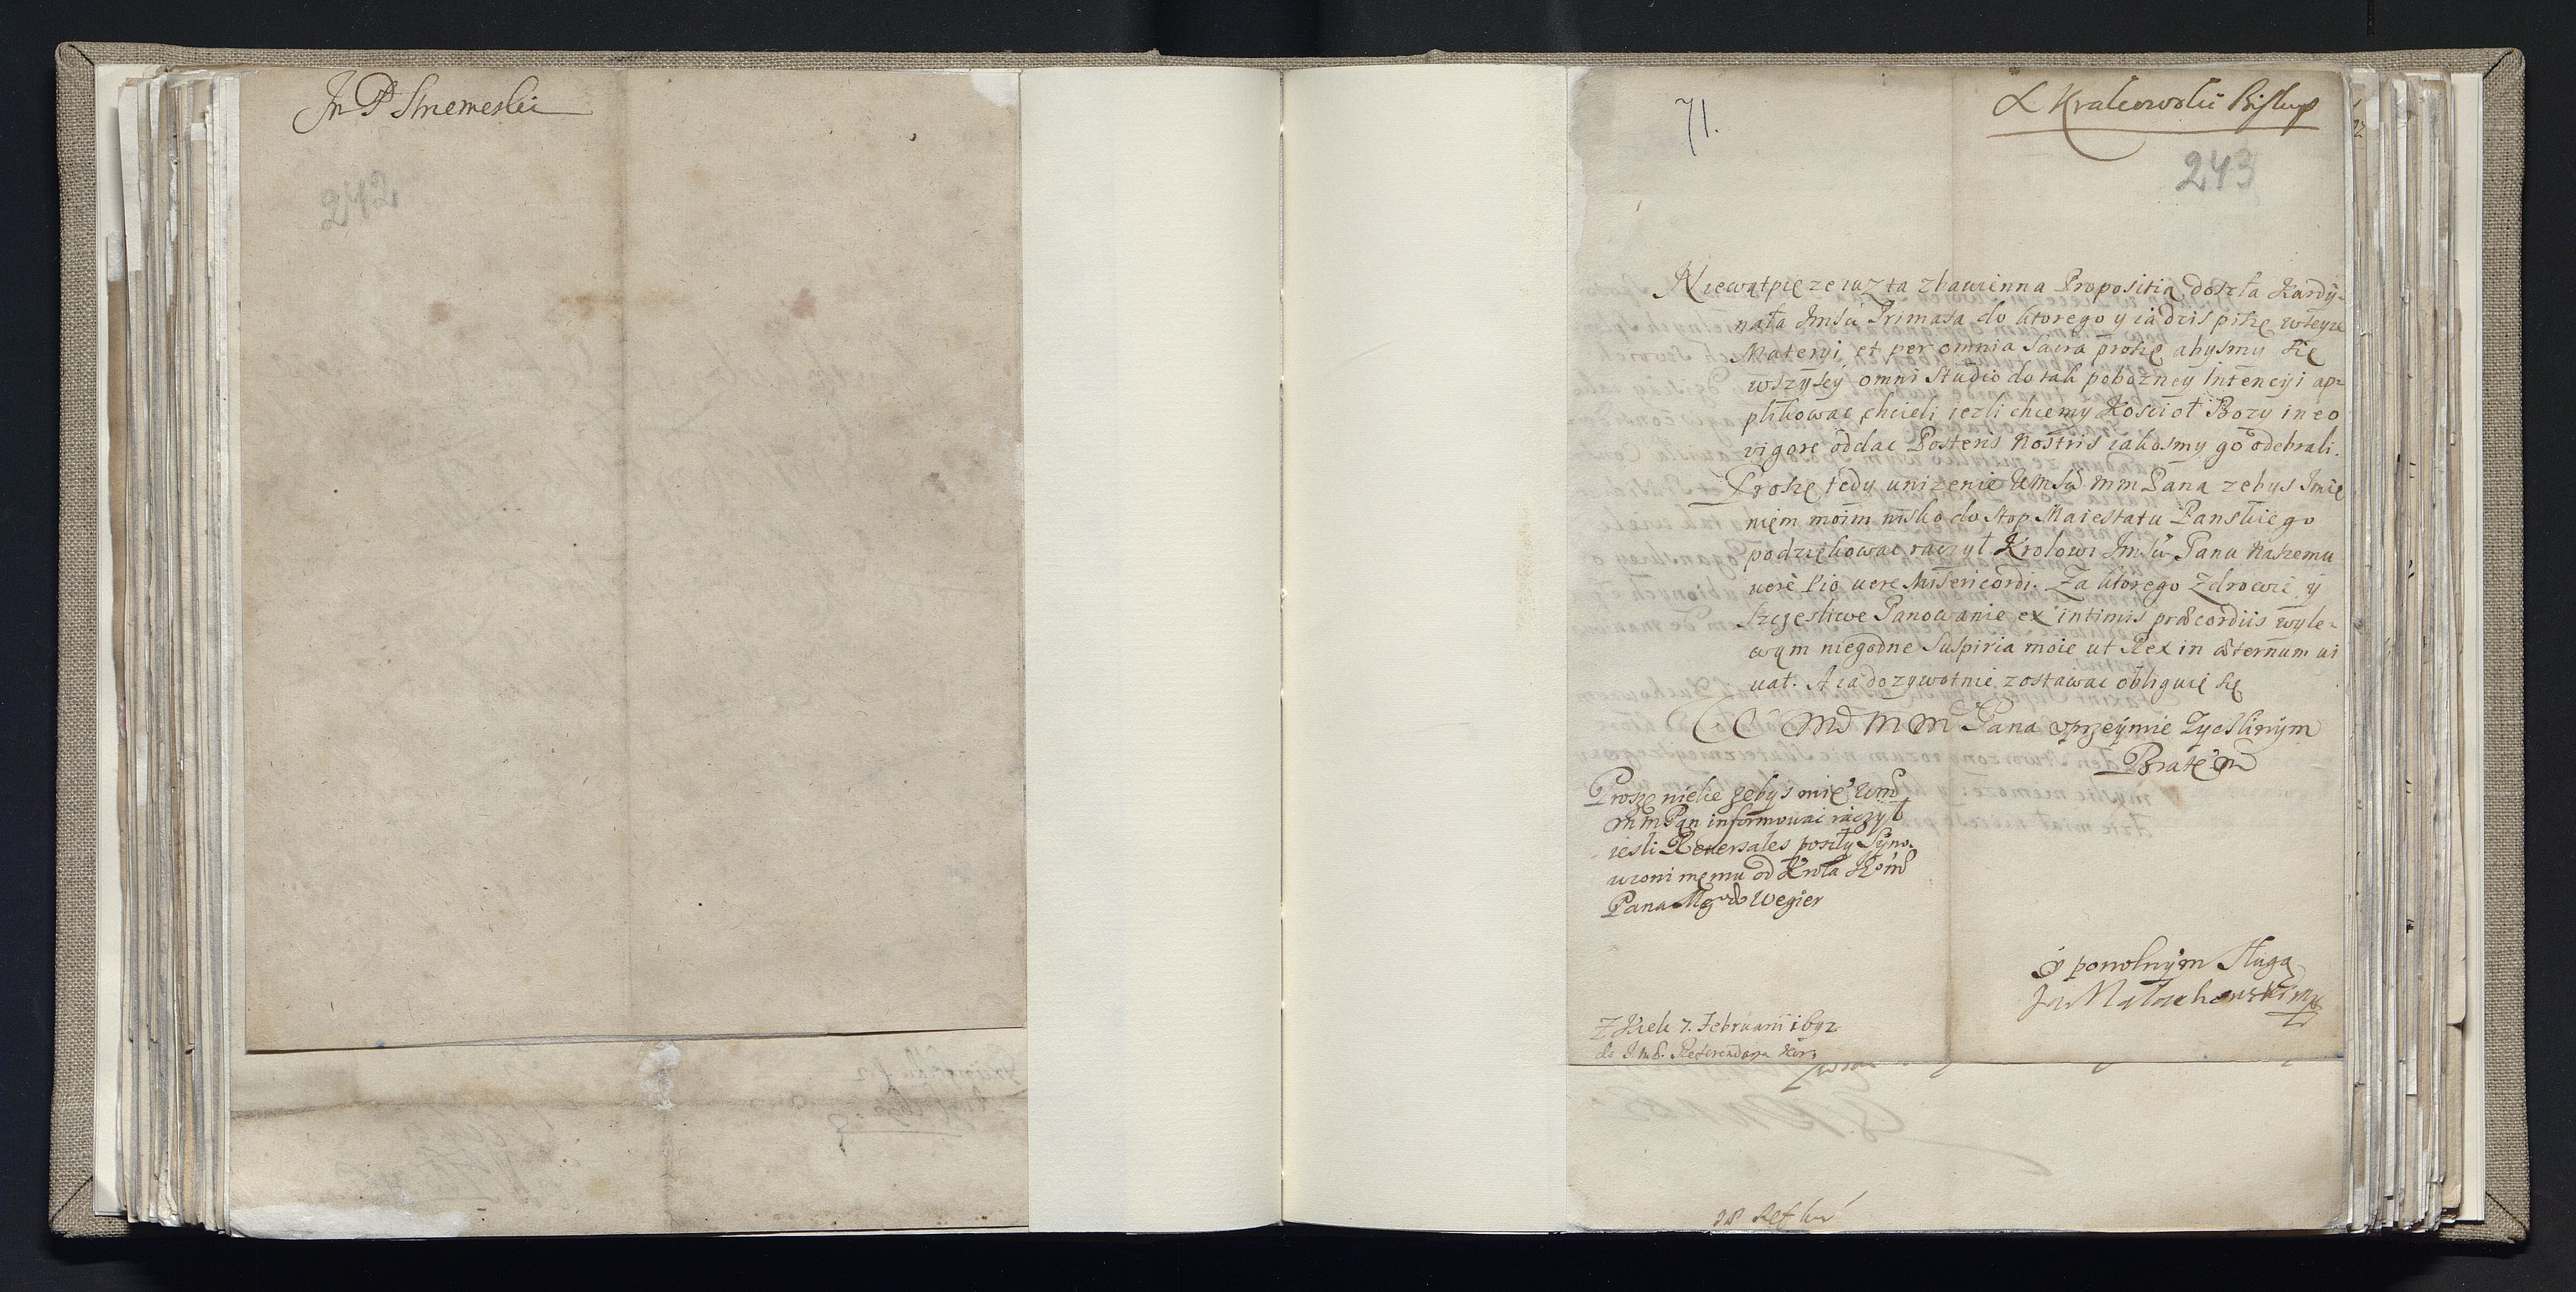 Jn P Strzemeski
242
71.
X Krakowski Biskup
243
Niewątpię ze iuz ta zbawienna Propositia doszła Kardy-
nała Jmści Primasa do ktorego y ia dzis piszę w teyze
Materyi et per omnia Sacra proszę abysmy się
wszyscy omni Studio do tak pobozney Intencyi ap-
plikowac chcieli iezli chcemy Kościoł Bozy in eo
vigore oddac Posteris Nostris iakosmy go odebrali.
Proszę tedy unizenie WMści mm Pana zebys Imie
niem moim nisko do stop Maiestatu Panskiego
podziękowac raczył Krolowi Jmści Panu Naszemu
vere Pio vere Misericordi. Za ktorego Zdrowie y
szczęsliwe Panowanie ex intimis præcordiis wyle-
wam niegodne Suspiria moie ut Rex in æternum vi
vat. A ia dozywotnie zostawac obliguię się
Mm Pana uprzeymie Zyczliwym
Bratem
Proszę zebys mię WMć
mm Pan informowac raczył
iesli Reversales poszły Syno-
wcowi memu od Krola JoMć
Pana Mgo do Wegier
y powolnym Sługą
Jan Małachowski mp
Z Kielc 7. Februarii 1692
do JmP. Referendarza Kor: